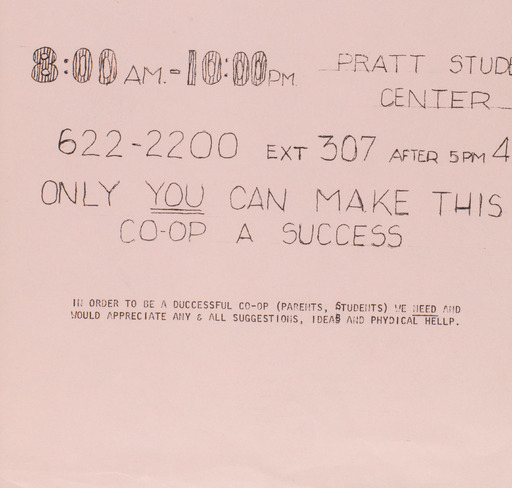 8:00 AM.-10:00PM PRATT STUDE
CENTER
622-2200 EXT 307 AFTER 5PM 4
ONLY YOU CAN MAKE THIS
CO-OP A SUCCESS
IN ORDER TO BE A DUCCESSFUL CO-OP (PARENTS, STUDENTS) WE NEED AND
WOULD APPRECIATE ANY & ALL SUGGESTIONS, IDEAS AND PHYDICAL HELLP.